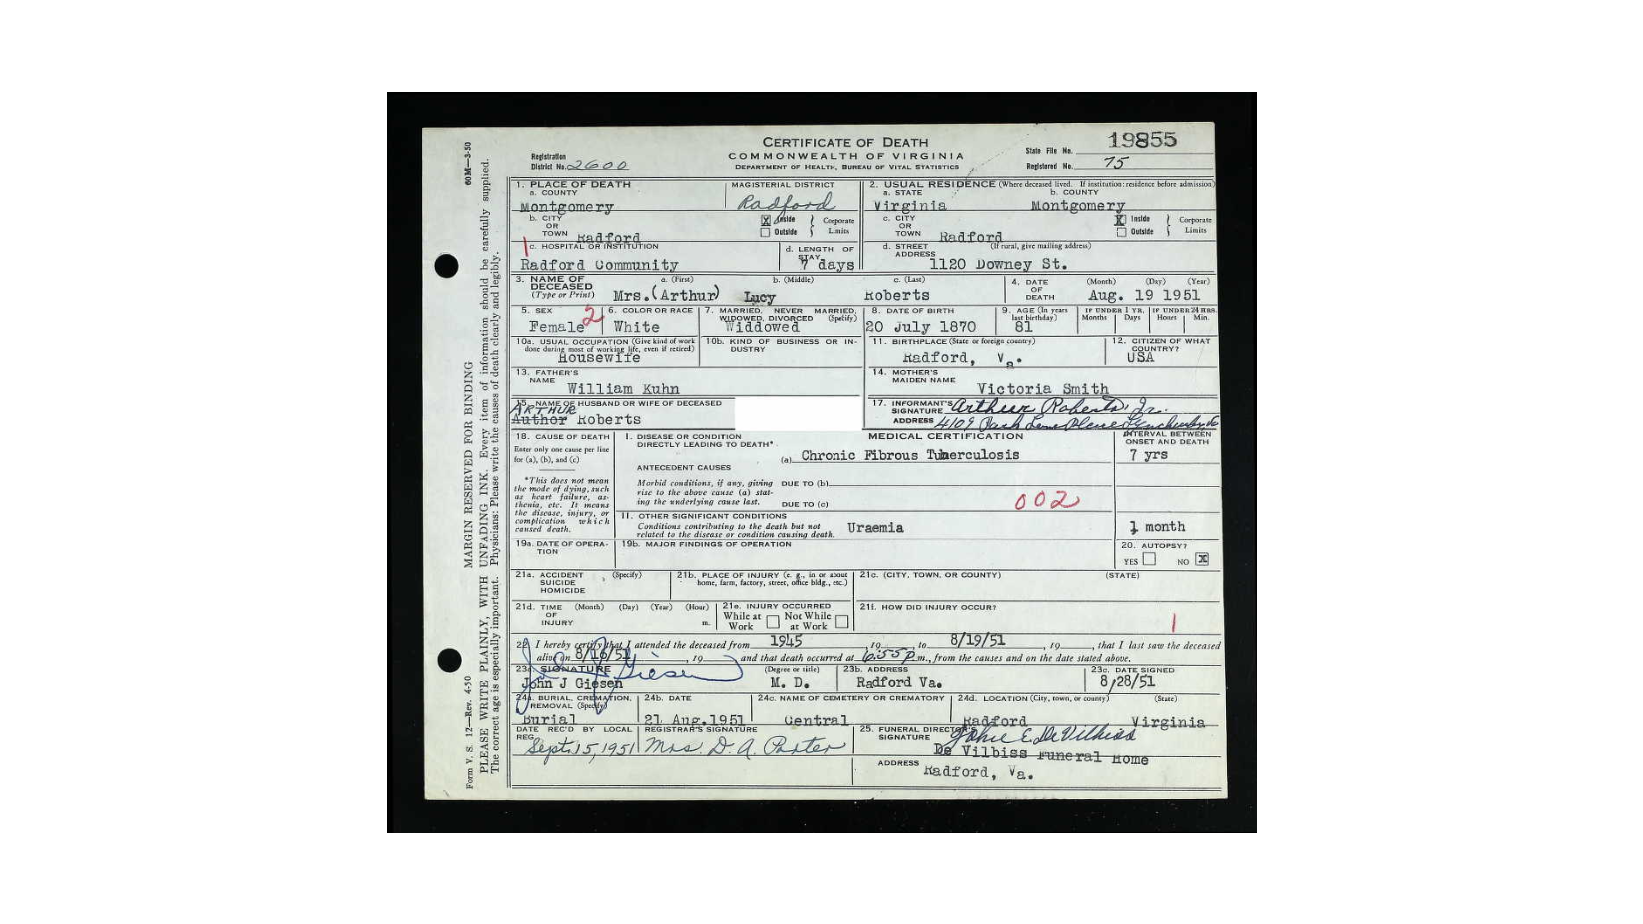 CERTIFICATE OF DEATH
COMMONWEALTH OF VIRGINIA
DEPARTMENT OF HEALTH, BUREAU OF VITAL STATISTICS
Registration
District No. 2600
State File No. 19855
Registered No. 75
1. PLACE OF DEATH
a. COUNTY
Montgomery
MAGISTERIAL DISTRICT
Radford
2. USUAL RESIDENCE (Where deceased lived. If institution: residence before admission)
a. STATE
Virginia
b. COUNTY
Montgomery
b. CITY
OR
TOWN Radford
X Inside
Outside
Corporate
Limits
c. CITY
OR
TOWN Radford
X Inside
Outside
Corporate
Limits
1
c. HOSPITAL OR INSTITUTION
Radford Community
d. LENGTH OF
STAY
7 days
d. STREET (If rural, give mailing address)
ADDRESS
1120 Downey St.
3. NAME OF
DECEASED
(Type or Print)
a. (First)
Mrs. (Arthur)
b. (Middle)
Lucy
c. (Last)
Roberts
4. DATE
OF
DEATH
(Month) (Day) (Year)
Aug. 19 1951
5. SEX
Female
2
6. COLOR OR RACE
White
7. MARRIED, NEVER MARRIED,
WIDOWED, DIVORCED (Specify)
Widdowed
8. DATE OF BIRTH
20 July 1870
9. AGE (In years
last birthday)
81
IF UNDER 1 YR.
Months Days
IF UNDER 24 HRS.
Hours Min.
10a. USUAL OCCUPATION (Give kind of work
done during most of working life, even if retired)
Housewife
10b. KIND OF BUSINESS OR IN-
DUSTRY
11. BIRTHPLACE (State or foreign country)
Radford, Va.
12. CITIZEN OF WHAT
COUNTRY?
USA
13. FATHER'S
NAME
William Kuhn
14. MOTHER'S
MAIDEN NAME
Victoria Smith
15. NAME OF HUSBAND OR WIFE OF DECEASED
ARTHUR
Author Roberts
17. INFORMANT'S
SIGNATURE Arthur Roberts, Jr.
ADDRESS 4109
18. CAUSE OF DEATH
Enter only one cause per line
for (a), (b), and (c)
*This does not mean
the mode of dying, such
as heart failure, as-
thenia, etc. It means
the disease, injury, or
complication which
caused death.
MEDICAL CERTIFICATION
I. DISEASE OR CONDITION
DIRECTLY LEADING TO DEATH*
(a) Chronic Fibrous Tuberculosis
INTERVAL BETWEEN
ONSET AND DEATH
7 yrs
ANTECEDENT CAUSES
Morbid conditions, if any, giving
rise to the above cause (a) stat-
ing the underlying cause last.
DUE TO (b)
DUE TO (c)
002
II. OTHER SIGNIFICANT CONDITIONS
Conditions contributing to the death but not
related to the disease or condition causing death.
Uraemia
1 month
19a. DATE OF OPERA-
TION
19b. MAJOR FINDINGS OF OPERATION
20. AUTOPSY?
YES NO X
21a. ACCIDENT (Specify)
SUICIDE
HOMICIDE
21b. PLACE OF INJURY (e. g., in or about
home, farm, factory, street, office bldg., etc.)
21c. (CITY, TOWN, OR COUNTY) (STATE)
21d. TIME (Month) (Day) (Year) (Hour)
OF
INJURY m.
21e. INJURY OCCURRED
While at
Work
Not While
at Work
21f. HOW DID INJURY OCCUR?
1
22. I hereby certify that I attended the deceased from 1945, 19 to 8/19/51, 19, that I last saw the deceased
alive on 8/16/51, 19 and that death occurred at 6:55 P m., from the causes and on the date stated above.
23a. SIGNATURE
John J Giesen
(Degree or title)
M. D.
23b. ADDRESS
Radford Va.
23c. DATE SIGNED
8/28/51
24a. BURIAL, CREMATION,
REMOVAL (Specify)
Burial
24b. DATE
21 Aug. 1951
24c. NAME OF CEMETERY OR CREMATORY
Central
24d. LOCATION (City, town, or county) (State)
Radford Virginia
DATE REC'D BY LOCAL
REG.
Sept. 15, 1951
REGISTRAR'S SIGNATURE
Mrs. D. A. Porter
25. FUNERAL DIRECTOR'S
SIGNATURE
De Vilbiss Funeral Home
ADDRESS
Radford, Va.
60M—3-50
MARGIN RESERVED FOR BINDING
PLEASE WRITE PLAINLY, WITH UNFADING INK. Every item of information should be carefully supplied.
The correct age is especially important. Physicians: Please write the causes of death clearly and legibly.
Form V. S. 12—Rev. 4-50